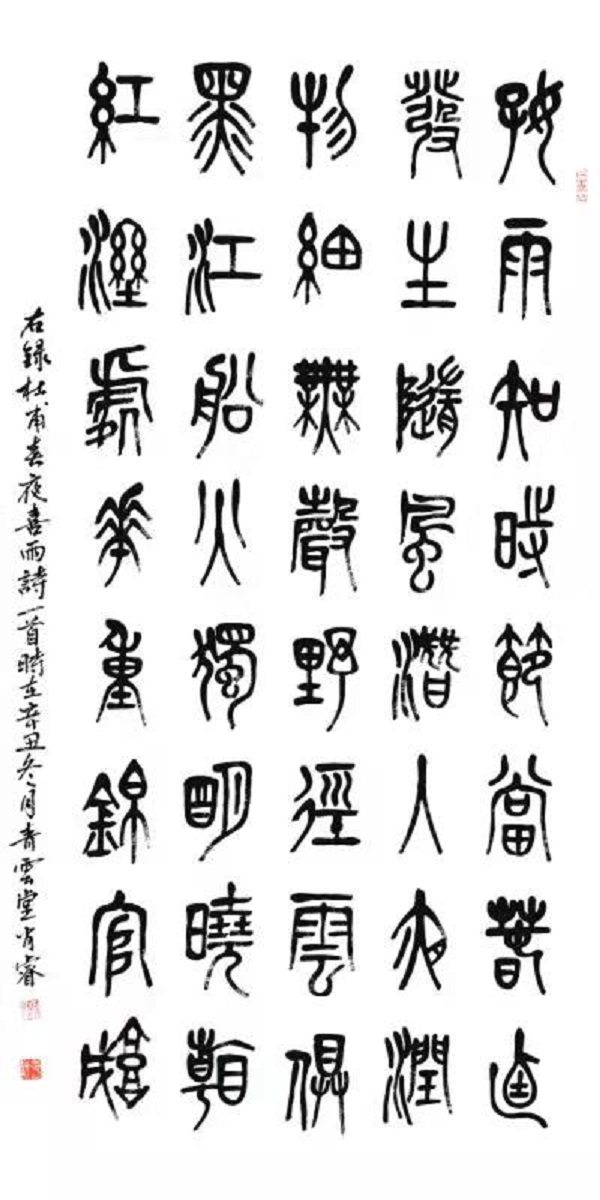 好雨知時節當春乃
發生隨風潛入夜潤
物細無聲野徑雲俱
黑江船火獨明曉看
紅溼處花重錦官城
右録杜甫春夜喜雨詩一首時在辛丑冬月青雲堂肖睿